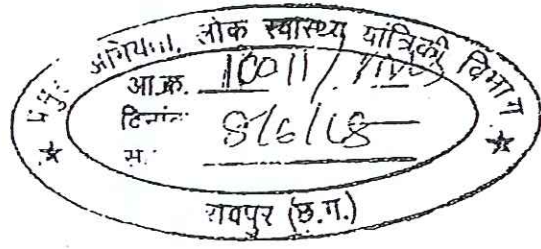 प्रमुख अभियंता, लोक स्वास्थ्य यांत्रिकी विभाग
आ.क्र. 10011/
दिनांक 8/6/18
स.
रायपुर (छ.ग.)